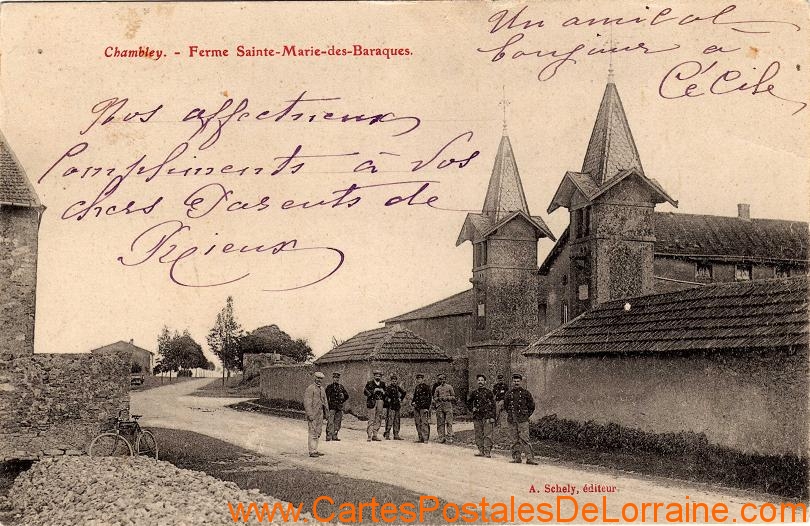 Chambley. - Ferme Sainte-Marie-des-Baraques.
Un amical
bonjour a
Cécile
Nos affectueux
Compliments à Vos
chers Parents de
Rieux
A. Schely, éditeur.
www.CartesPostalesDeLorraine.com